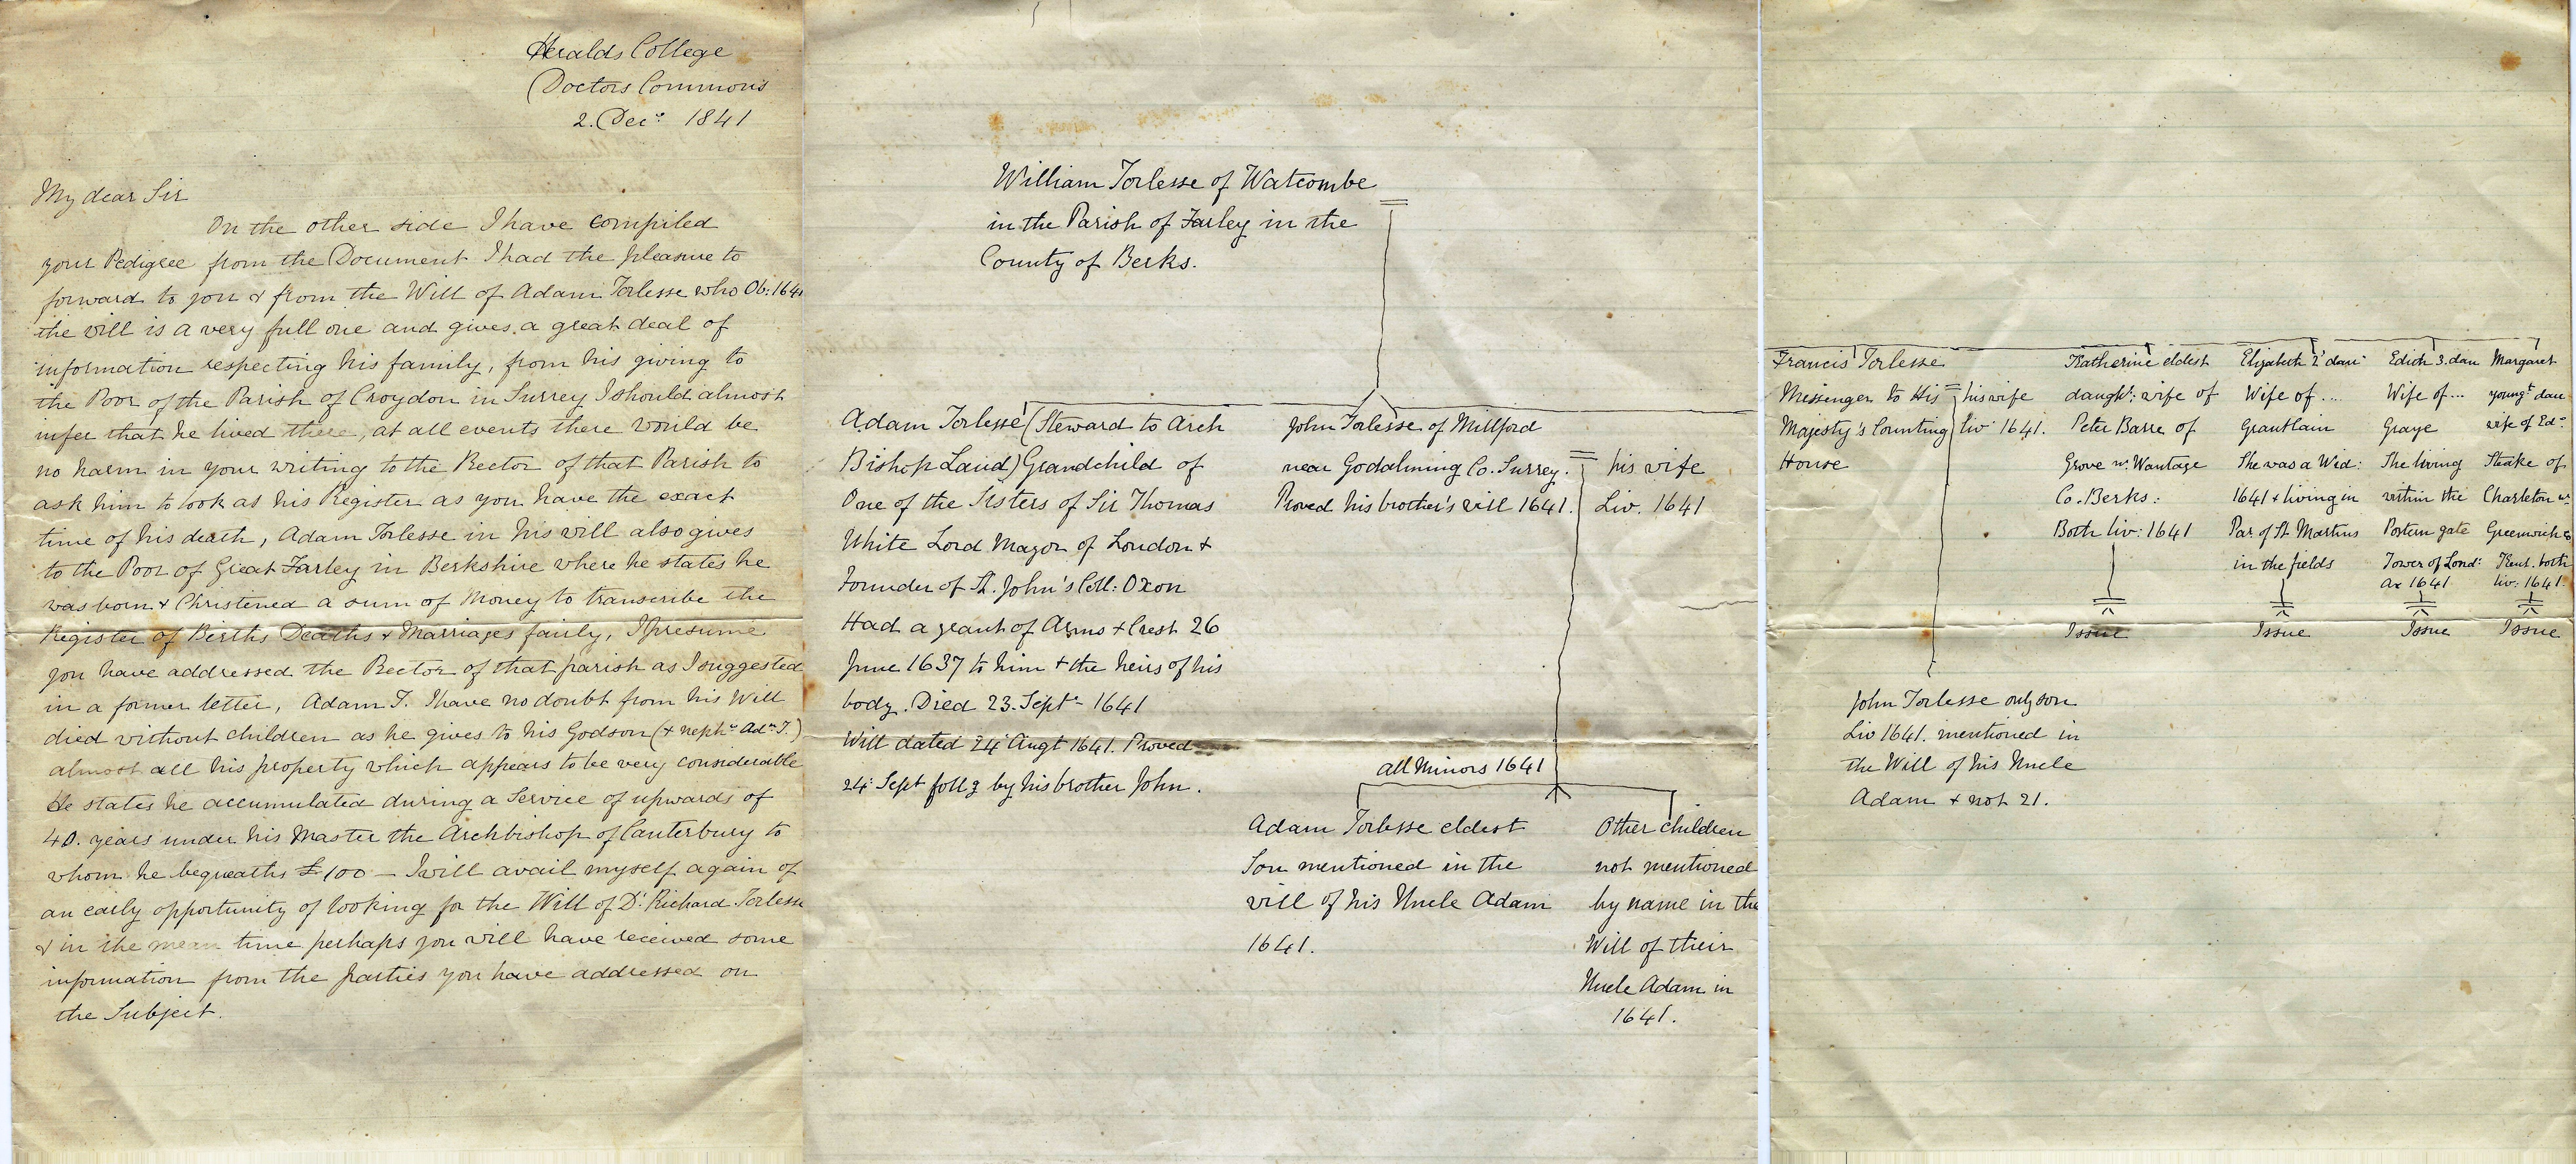 Heralds College
Doctors Commons
2. Decr. 1841
My dear Sir
On the other side I have compiled
your Pedigree from the Document I had the pleasure to
forward to you & from the Will of Adam Torlesse who Ob: 1641
the will is a very full one and gives a great deal of
information respecting his family, from his giving to
the Poor of the Parish of Croydon in Surrey I should almost
infer that he lived there, at all events there would be
no harm in your writing to the Rector of that Parish to
ask him to look at his Register as you have the exact
time of his death, Adam Torlesse in his will also gives
to the Poor of Great Farley in Berkshire where he states he
was born & Christened a sum of Money to transcribe the
Register of Births Deaths & Marriages fairly, I presume
you have addressed the Rector of that parish as I suggested
in a former letter, Adam T. I have no doubt from his Will
died without children as he gives to his Godson (& nephw Adm T.)
almost all his property which appears to be very considerable
He states he accumulated during a Service of upwards of
40. years under his Master the Archbishop of Canterbury to
whom he bequeaths £100 – I will avail myself again of
an early opportunity of looking for the Will of Dr. Richard Torlesse
& in the mean time perhaps you will have received some
information from the parties you have addressed on
the Subject.
William Torlesse of Watcombe
in the Parish of Farley in the
County of Berks.
Adam Torlesse (Steward to Arch
Bishop Laud) Grandchild of
One of the Sisters of Sir Thomas
White Lord Mayor of London &
Founder of St. John's Coll: Oxon
Had a grant of Arms & Crest 26
June 1637 to him & the heirs of his
body. Died 23. Septr 1641
Will dated 24 Augt 1641. Proved
24: Sept follg by his brother John.
John Torlesse of Millford
near Godalming Co. Surrey.
Proved his brother's will 1641.
his wife
Liv. 1641
all Minors 1641
Adam Torlesse eldest
Son mentioned in the
will of his Uncle Adam
1641.
Other children
not mentioned
by name in the
Will of their
Uncle Adam in
1641.
Francis Torlesse
Messenger to His
Majesty's Counting
House
his wife
liv 1641.
Katherine eldest
daught: wife of
Peter Barre of
Grove nr. Wantage
Co. Berks:
Both liv: 1641
Issue
Elizabeth 2 daur
Wife of ...
Grantlain
She was a Wid:
1641 & living in
Par. of St Martins
in the fields
Issue
Edith 3. dau
Wife of ...
Graye
She living
within the
Postern gate
Tower of Lond:
Ao 1641
Issue
Margaret
youngt dau
wife of Edd
Steake of
Charleton nr
Greenwich Co
Kent. both
liv: 1641.
Issue
John Torlesse only son
Liv 1641. mentioned in
the Will of his Uncle
Adam & not 21.